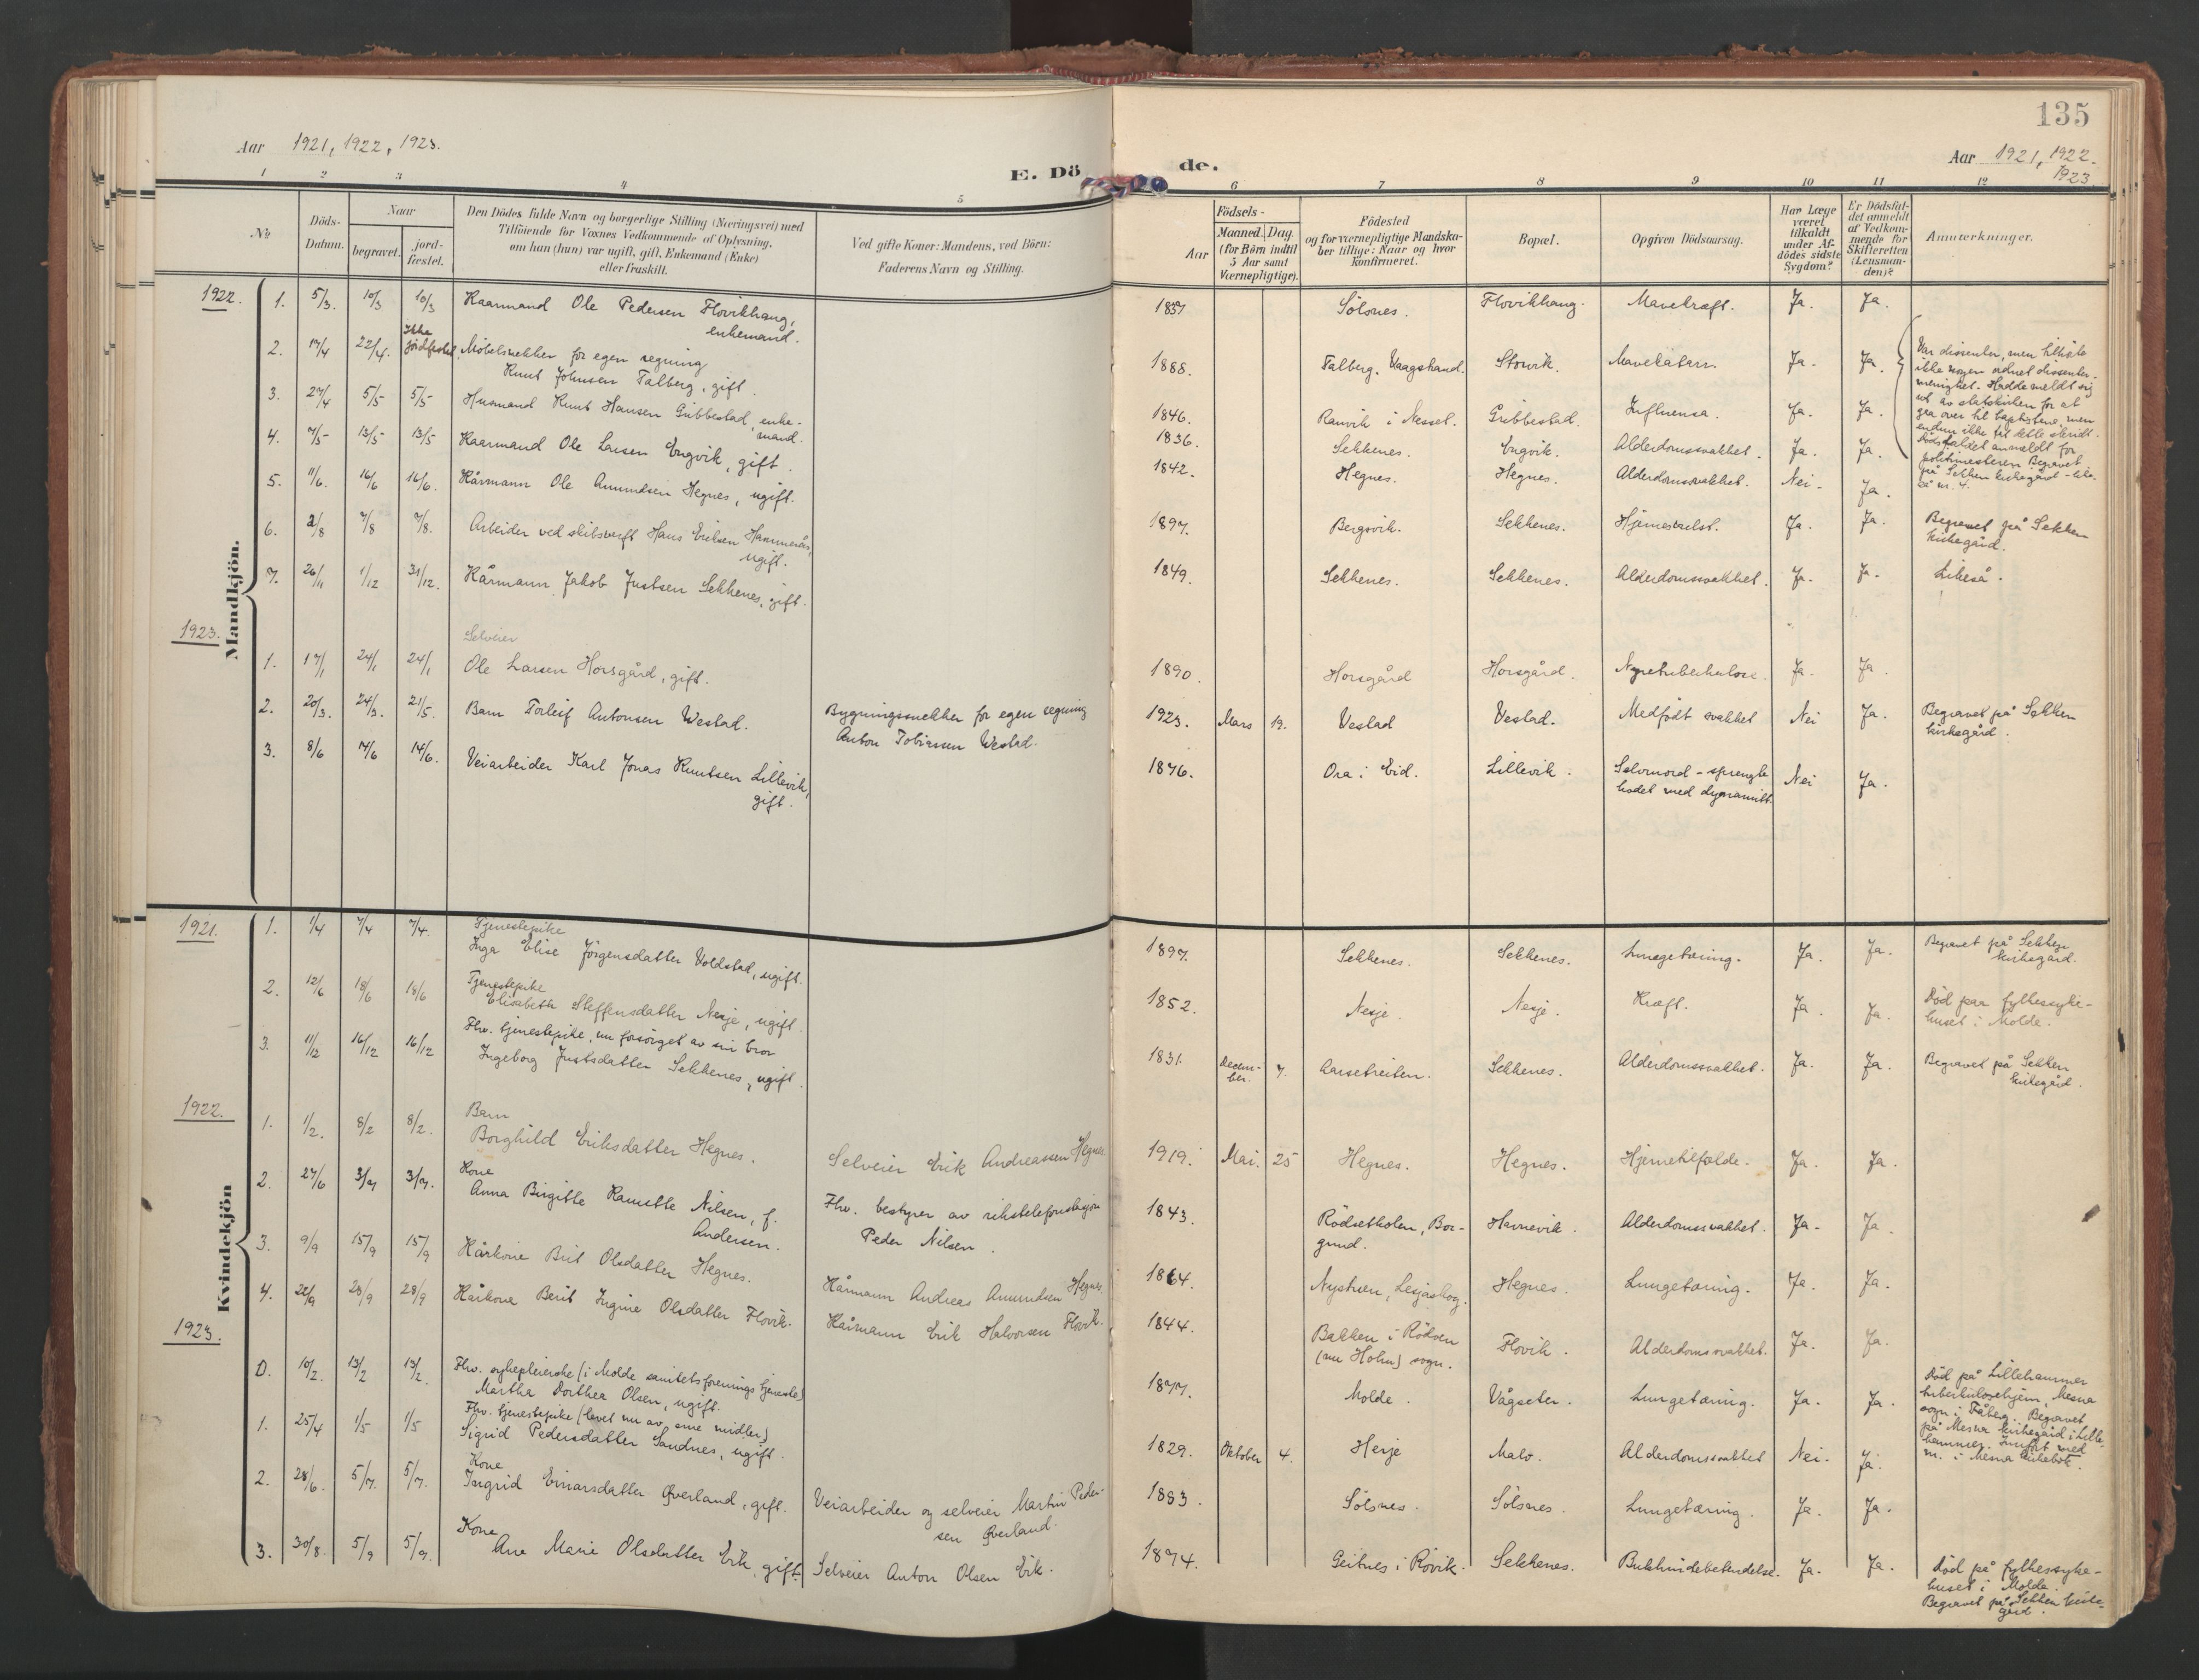 135
Aar 1921, 1922, 1923.
E. Dö de.
Aar 1921, 1922.
1923.
1 2 3 4 5 6 7 8 9 10 11 12
No
Döds-
Datum.
Naar
begravet.
jord-
fæstet.
Den Dödes fulde Navn og borgerlige Stilling (Næringsvei) med
Tilföiende for Voxnes Vedkommende af Oplysning,
om han (hun) var ugift, gift, Enkemand (Enke)
eller fraskilt.
Ved gifte Koner: Mandens, ved Börn:
Faderens Navn og Stilling.
Födsels-
Aar
Maaned. Dag.
(for Börn indtil
5 Aar samt
Værnepligtige).
Födested
og for værnepligtige Mandska-
ber tillige: Naar og hvor
konfirmeret.
Bopæl.
Opgiven Dödsaarsag.
Har Læge
været
tilkaldt
under Af-
dödes sidste
Sygdom?
Er Dödsfal-
det anmeldt
af Vedkom-
mende for
Skifteretten
(Lensman-
den)?
Anmærkninger.
Mandkjön.
1922.
1. 5/3. 10/3 10/3 Kaarmand Ole Pedersen Flovikhaug, 1857 Sölsnes. Flovikhaug. Mavekræft. Ja. Ja.
enkemand.
2. 17/4 22/4. Ikke Møbelsnekker for egen regning 1888. Talberg, Vaagstrand. Storvik. Mavekatarr. Ja. Ja.
jordfæstet
Knut Johnsen Talberg, gift.
Var dissenter, men tilhørte
ikke nogen ordnet dissenter-
menighet. Hadde meldt sig
ut av statskirken for at
gaa over til baptistene, men
endnu ikke tat dette skridt.
Dödsfaldet anmeldt for
politimesteren. Begravet
på Sekken kirkegård - like-
så nr. 4.
3. 27/4 5/5 5/5 Husmand Knut Hansen Gribbestad, enke- 1846. Ranvik i Nesset. Gribbestad. Influensa. Ja. Ja.
mand.
4. 7/5 13/5 13/5 Kaarmand Ole Larsen Engvik, gift. 1836. Sekkenes. Engvik. Alderdomssvakhet. Ja. Ja.
5. 11/6. 16/6 16/6. Kårmann Ole Amundsen Hegnes, ugift. 1842. Hegnes. Hegnes. Alderdomssvakhet. Nei- Ja.
6. 2/8 7/8 7/8. Arbeider ved skibsverft Hans Eriksen Hammerås, 1897. Bergsvik. Sekkenes. Hjernesvulst. Ja. Ja. Begravet på Sekken
ugift. kirkegård.
7. 26/11 1/12 31/12. Kårmann Jakob Justsen Sekkenes, gift. 1849. Sekkenes. Sekkenes. Alderdomssvakhet. Ja. Ja. Likeså.
1923.
Selveier
1. 17/1 24/1 24/1 Ole Larsen Horsgård, gift. 1890. Horsgård Horsgård. Nyretuberkulose. Ja. Ja.
2. 20/3. 24/3. 21/5. Barn Torleif Antonsen Westad. Bygningssnekker for egen regning 1923. Mars 19. Vestad Vestad. Medfødt svakhet Nei Ja. Begravet på Sekken
Anton Tobiassen Westad. kirkegård.
3. 8/6 14/6 14/6. Veiarbeider Karl Jonas Knutsen Lillevik, 1876. Ora i Eid. Lillevik. Selvmord - sprengte Nei Ja.
gift. hodet med dynamitt.
Kvindekjön
1921.
1. 1/4 7/4 7/4. Tjenestepike
Inga Elise Jörgensdatter Voldstad, ugift. 1897. Sekkenes. Sekkenes. Lungetæring. Ja. Ja. Begravet på Sekken
kirkegård.
2. 12/6 18/6 18/6 Tjenestepike
Elisabeth Steffensdatter Nesje, ugift. 1852. Nesje. Nesje. Kræft. Ja. Ja. Död paa fylkessyke-
huset i Molde.
3. 11/12 16/12 16/12 Fhv. tjenestepike, nu forsörget av sin bror
Ingeborg Justsdatter Sekkenes, ugift. 1831. Decem- 7. Aarsetreiten. Sekkenes. Alderdomssvakhet. Ja. Ja. Begravet på Sekken
ber. kirkegård.
1922.
1. 1/2. 8/2 8/2. Barn
Borghild Eriksdatter Hegnes. Selveier Erik Andreassen Hegnes. 1919. Mai. 25 Hegnes. Hegnes. Hjernetilfælde. Ja. Ja.
2. 27/6 3/7 3/7. Kone
Anna Birgitte Ramette Nilsen, f. Fhv. bestyrer av rikstelefonstasjon 1843. Rödsetholen, Bor- Havnevik. Alderdomssvakhet. Ja. Ja.
Andersen. Peder Nilsen. gund.
3. 9/9 15/9 15/9 Kårkone Brit Olsdatter Hegnes. Kårmann Andreas Amundsen Hegnes. 1864. Nystuen, Lesjaskog. Hegnes. Lungetæring. Ja. Ja.
4. 22/9 28/9 28/9 Kårkone Berit Ingine Olsdatter Flovik. Kårmann Erik Halvorsen Flovik. 1844. Bakken i Rödven Flovik. Alderdomssvakhet. Ja. Ja.
(nu Holm) sogn.
1923.
0. 10/2. 13/2 13/2. Fhv. sykepleierske (i Molde sanitetsforenings tjeneste)
Martha Dorthea Olsen, ugift. 1877. Molde. Vågseter. Lungetæring. Ja. Ja. Död på Lillehammer
tuberkulosehjem, Mesna
sogn i Fåberg. Begravet
på Mesna kirkegård i Lille-
hammer. Innfört med
nr. i Mesna kirkebok.
1. 25/4 1/5 1/5 Fhv. tjenestepike (levet nu av sine midler)
Sigrid Pedersdatter Sandnes, ugift. 1829. Oktober 4. Herje Malo. Alderdomssvakhet Nei. Ja.
2. 28/6. 5/7. 5/7. Kone
Ingrid Einarsdatter Øverland, gift. Veiarbeider og selveier Martin Peder- 1883. Sölsnes. Sölsnes. Lungetæring. Ja. Ja.
sen Øverland.
3. 30/8. 5/9 5/9. Kone
Ane Marie Olsdatter Eik, gift. Selveier Anton Olsen Eik. 1874. Geitnes i Rövik. Sekkenes. Bukhindebetendelse. Ja. Ja. Död på fylkessyke-
huset i Molde.
Begravet på Sekken kirke-
gård.